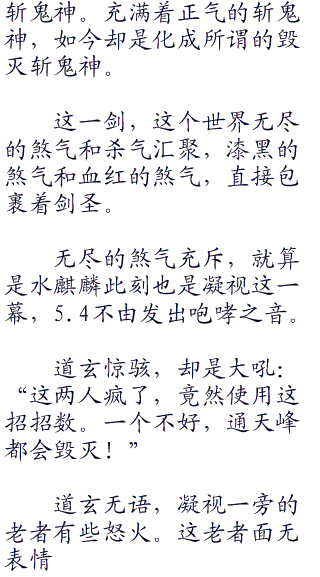 斩鬼神。充满着正气的斩鬼
神，如今却是化成所谓的毁
灭斩鬼神。
这一剑，这个世界无尽
的煞气和杀气汇聚，漆黑的
煞气和血红的煞气，直接包
裹着剑圣。
无尽的煞气充斥，就算
是水麒麟此刻也是凝视这一
幕，5.4不由发出咆哮之音。
道玄惊骇，却是大吼：
“这两人疯了，竟然使用这
招招数。一个不好，通天峰
都会毁灭！”
道玄无语，凝视一旁的
老者有些怒火。这老者面无
表情